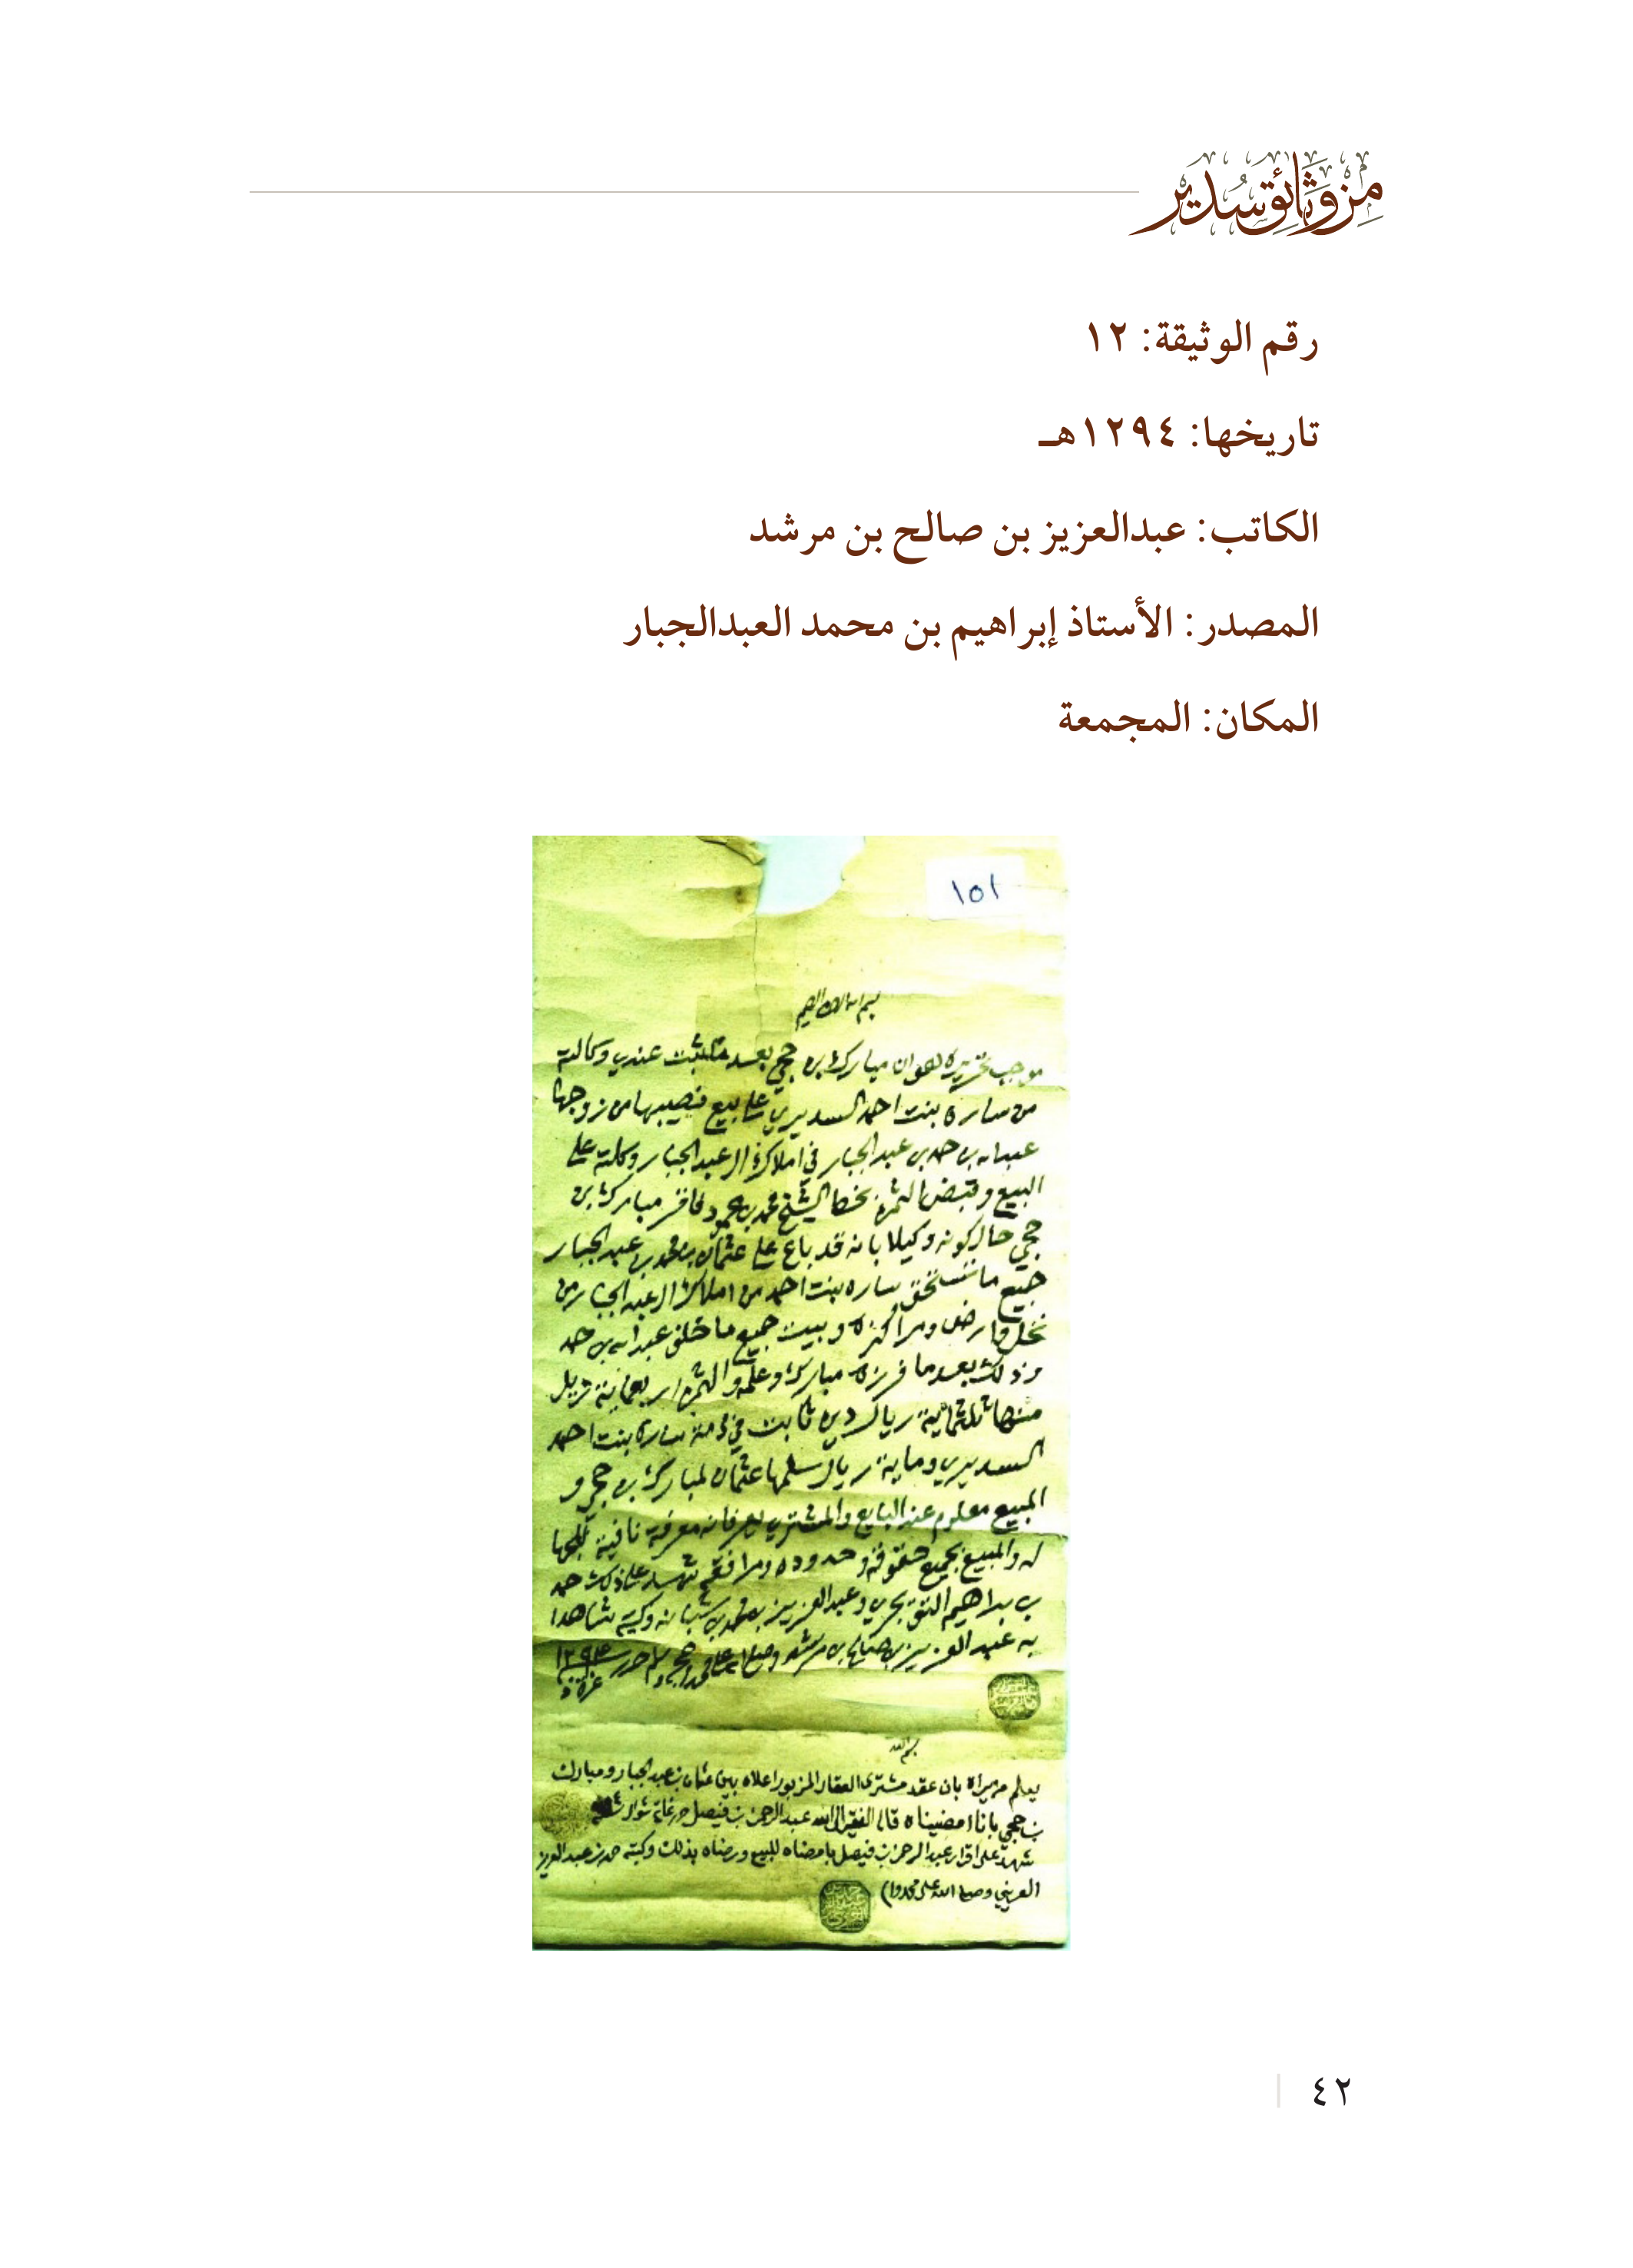 من وثائق سدير
رقم الوثيقة: ١٢
تاريخها: ١٢٩٤هـ
الكاتب: عبدالعزيز بن صالح بن مرشد
المصدر: الأستاذ إبراهيم بن محمد العبدالجبار
المكان: المجمعة
١٥١
بسم الله الرحمن الرحيم
موجب تحريره هو ان مبارك بن حجي بعد ما ثبت عندي وكالته
من ساره بنت احمد السديري على بيع نصيبها من زوجها
عبدالله بن حمد بن عبدالجبار في املاك ال عبدالجبار وكلته على
البيع وقبض الثمن بخط الشيخ محمد بن محمود فاقر مبارك بن
حجي حال كونه وكيلا بانه قد باع على عثمان بن محمد بن عبدالجبار
جميع ما تستحق ساره بنت احمد من املاك ال عبدالجبار من
نخل وارض ومراكزه وبيت جميع ما خلف عبدالله بن حمد
وذلك بعد ما فرزه مبارك وعلمه والثمن اربعماية ريال
منها ثلثماية ريال ديره ثابت في ذمة ساره بنت احمد
السديري وماية ريال سلمها عثمان لمبارك بن حجي و
المبيع معلوم عند البايع والمشتري يعرفانه معرفة نافية للجها
له والمبيع بجميع حقوقه وحدوده ومرافقه شهد على ذلك حمد
بن براهيم التويجري وعبدالعزيز بن محمد بن شبانه وكتبه شاهدا
به عبدالعزيز بن صالح بن مرشد وصلى الله على محمد وسلم حرر ١٢٩٤
بسم الله
يعلم من يراه بان عقد مشترى العقار المزبور اعلاه بين عثمان بن عبدالجبار ومبارك
بن حجي بانا امضيناه قال الفقير الى الله عبدالرحمن بن فيصل حرر شوال
شهد على اقرار عبدالرحمن بن فيصل بامضاه للبيع ورضاه بذلك وكتبه حمد بن عبدالعزيز
العريني وصلى الله على محمد
٤٢